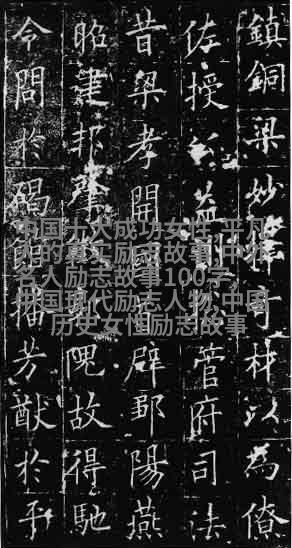 鎮銅梁妙擇奇材以為僚
佐授益管府司法
昔梁孝開國首辟鄒陽燕
昭建邦肇隗故得馳
令問於碣館播芳猷於平
中国十大成功女性,平凡
人的真实励志故事,中外
名人励志故事100字,
中国现代励志人物,中国
历史女性励志故事